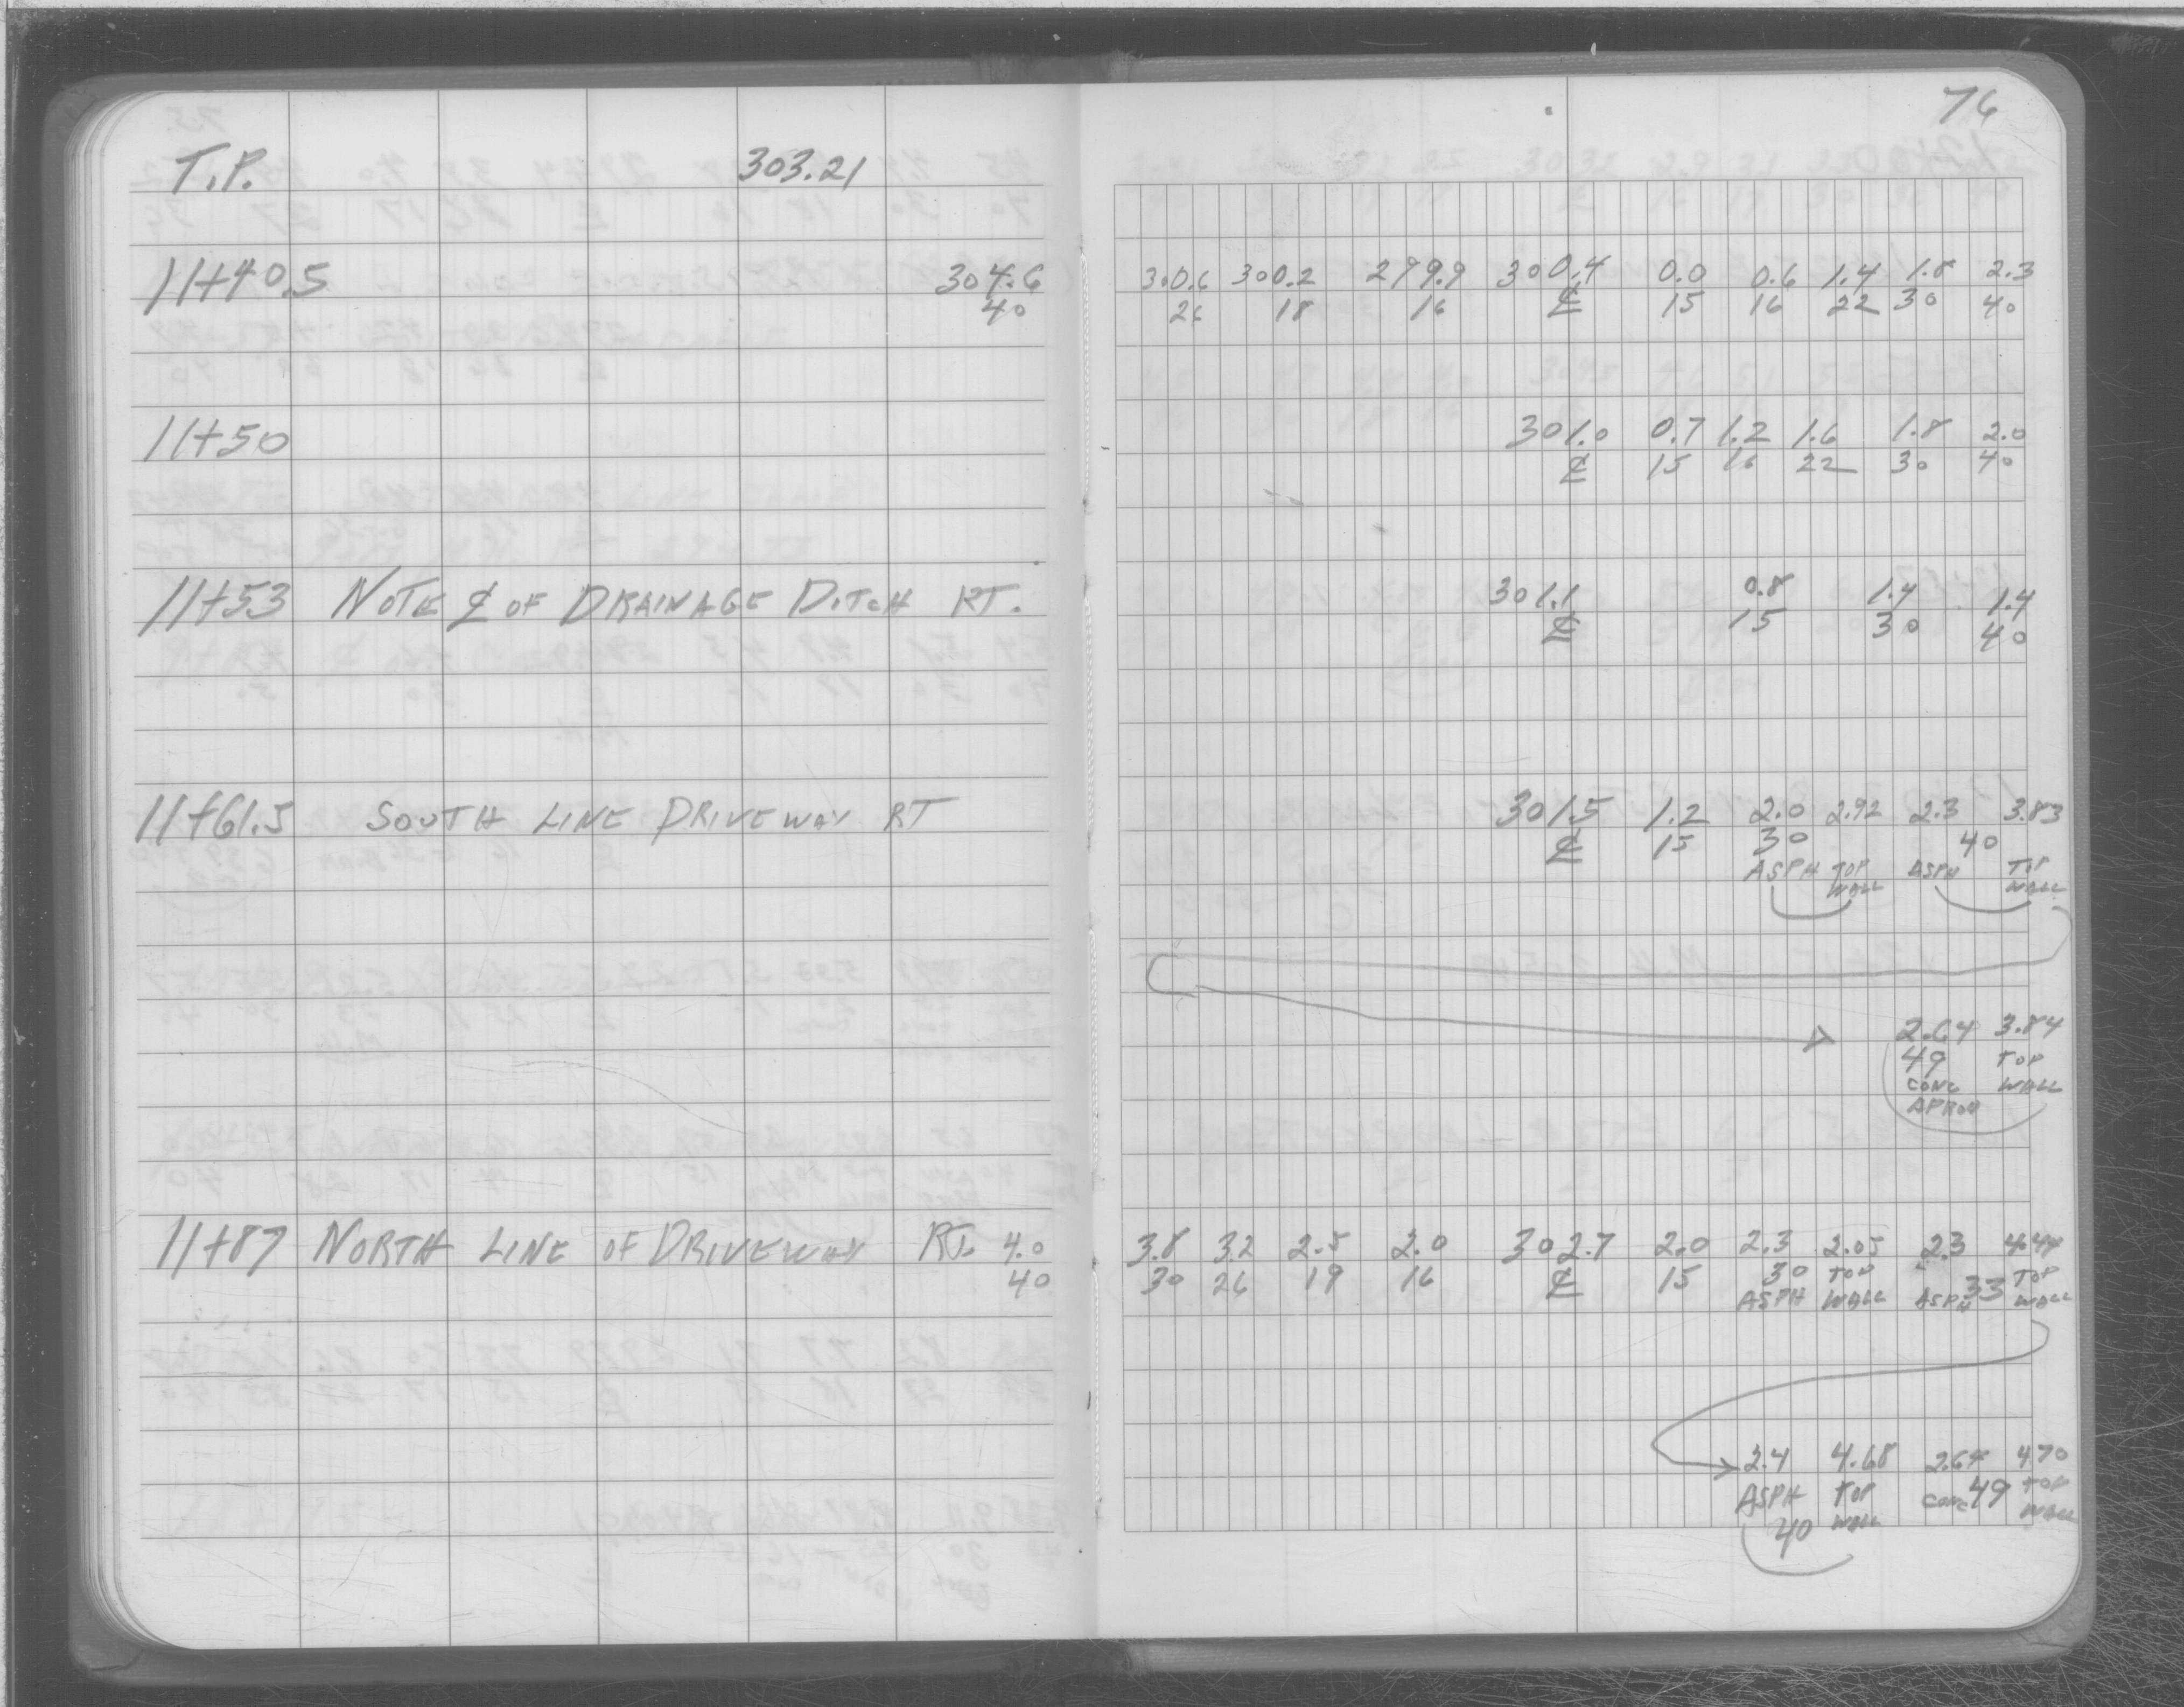 76
T.P. 303.21
11+40.5 304.6 300.6 300.2 299.9 300.4 0.0 0.6 1.4 1.8 2.3
40 26 18 16 ℄ 15 16 22 30 40
11+50 301.0 0.7 1.2 1.6 1.8 2.0
℄ 15 16 22 30 40
11+53 NOTE ℄ OF DRAINAGE DITCH RT. 301.1 0.8 1.4 1.4
℄ 15 30 40
11+61.5 SOUTH LINE DRIVEWAY RT 301.5 1.2 2.0 2.92 2.3 3.83
℄ 15 30 40
ASPH TOP WALL ASPH TOP WALL
2.64 3.84
49 TOP
CONC WALL
APRON
11+87 NORTH LINE OF DRIVEWAY RT. 4.0 3.8 3.2 2.5 2.0 302.7 2.0 2.3 2.05 2.3 4.44
40 30 26 19 16 ℄ 15 30 TOP 33 TOP
ASPH WALL ASPH WALL
2.4 4.68 2.64 4.70
ASPH TOP CONC 49 TOP
40 WALL WALL